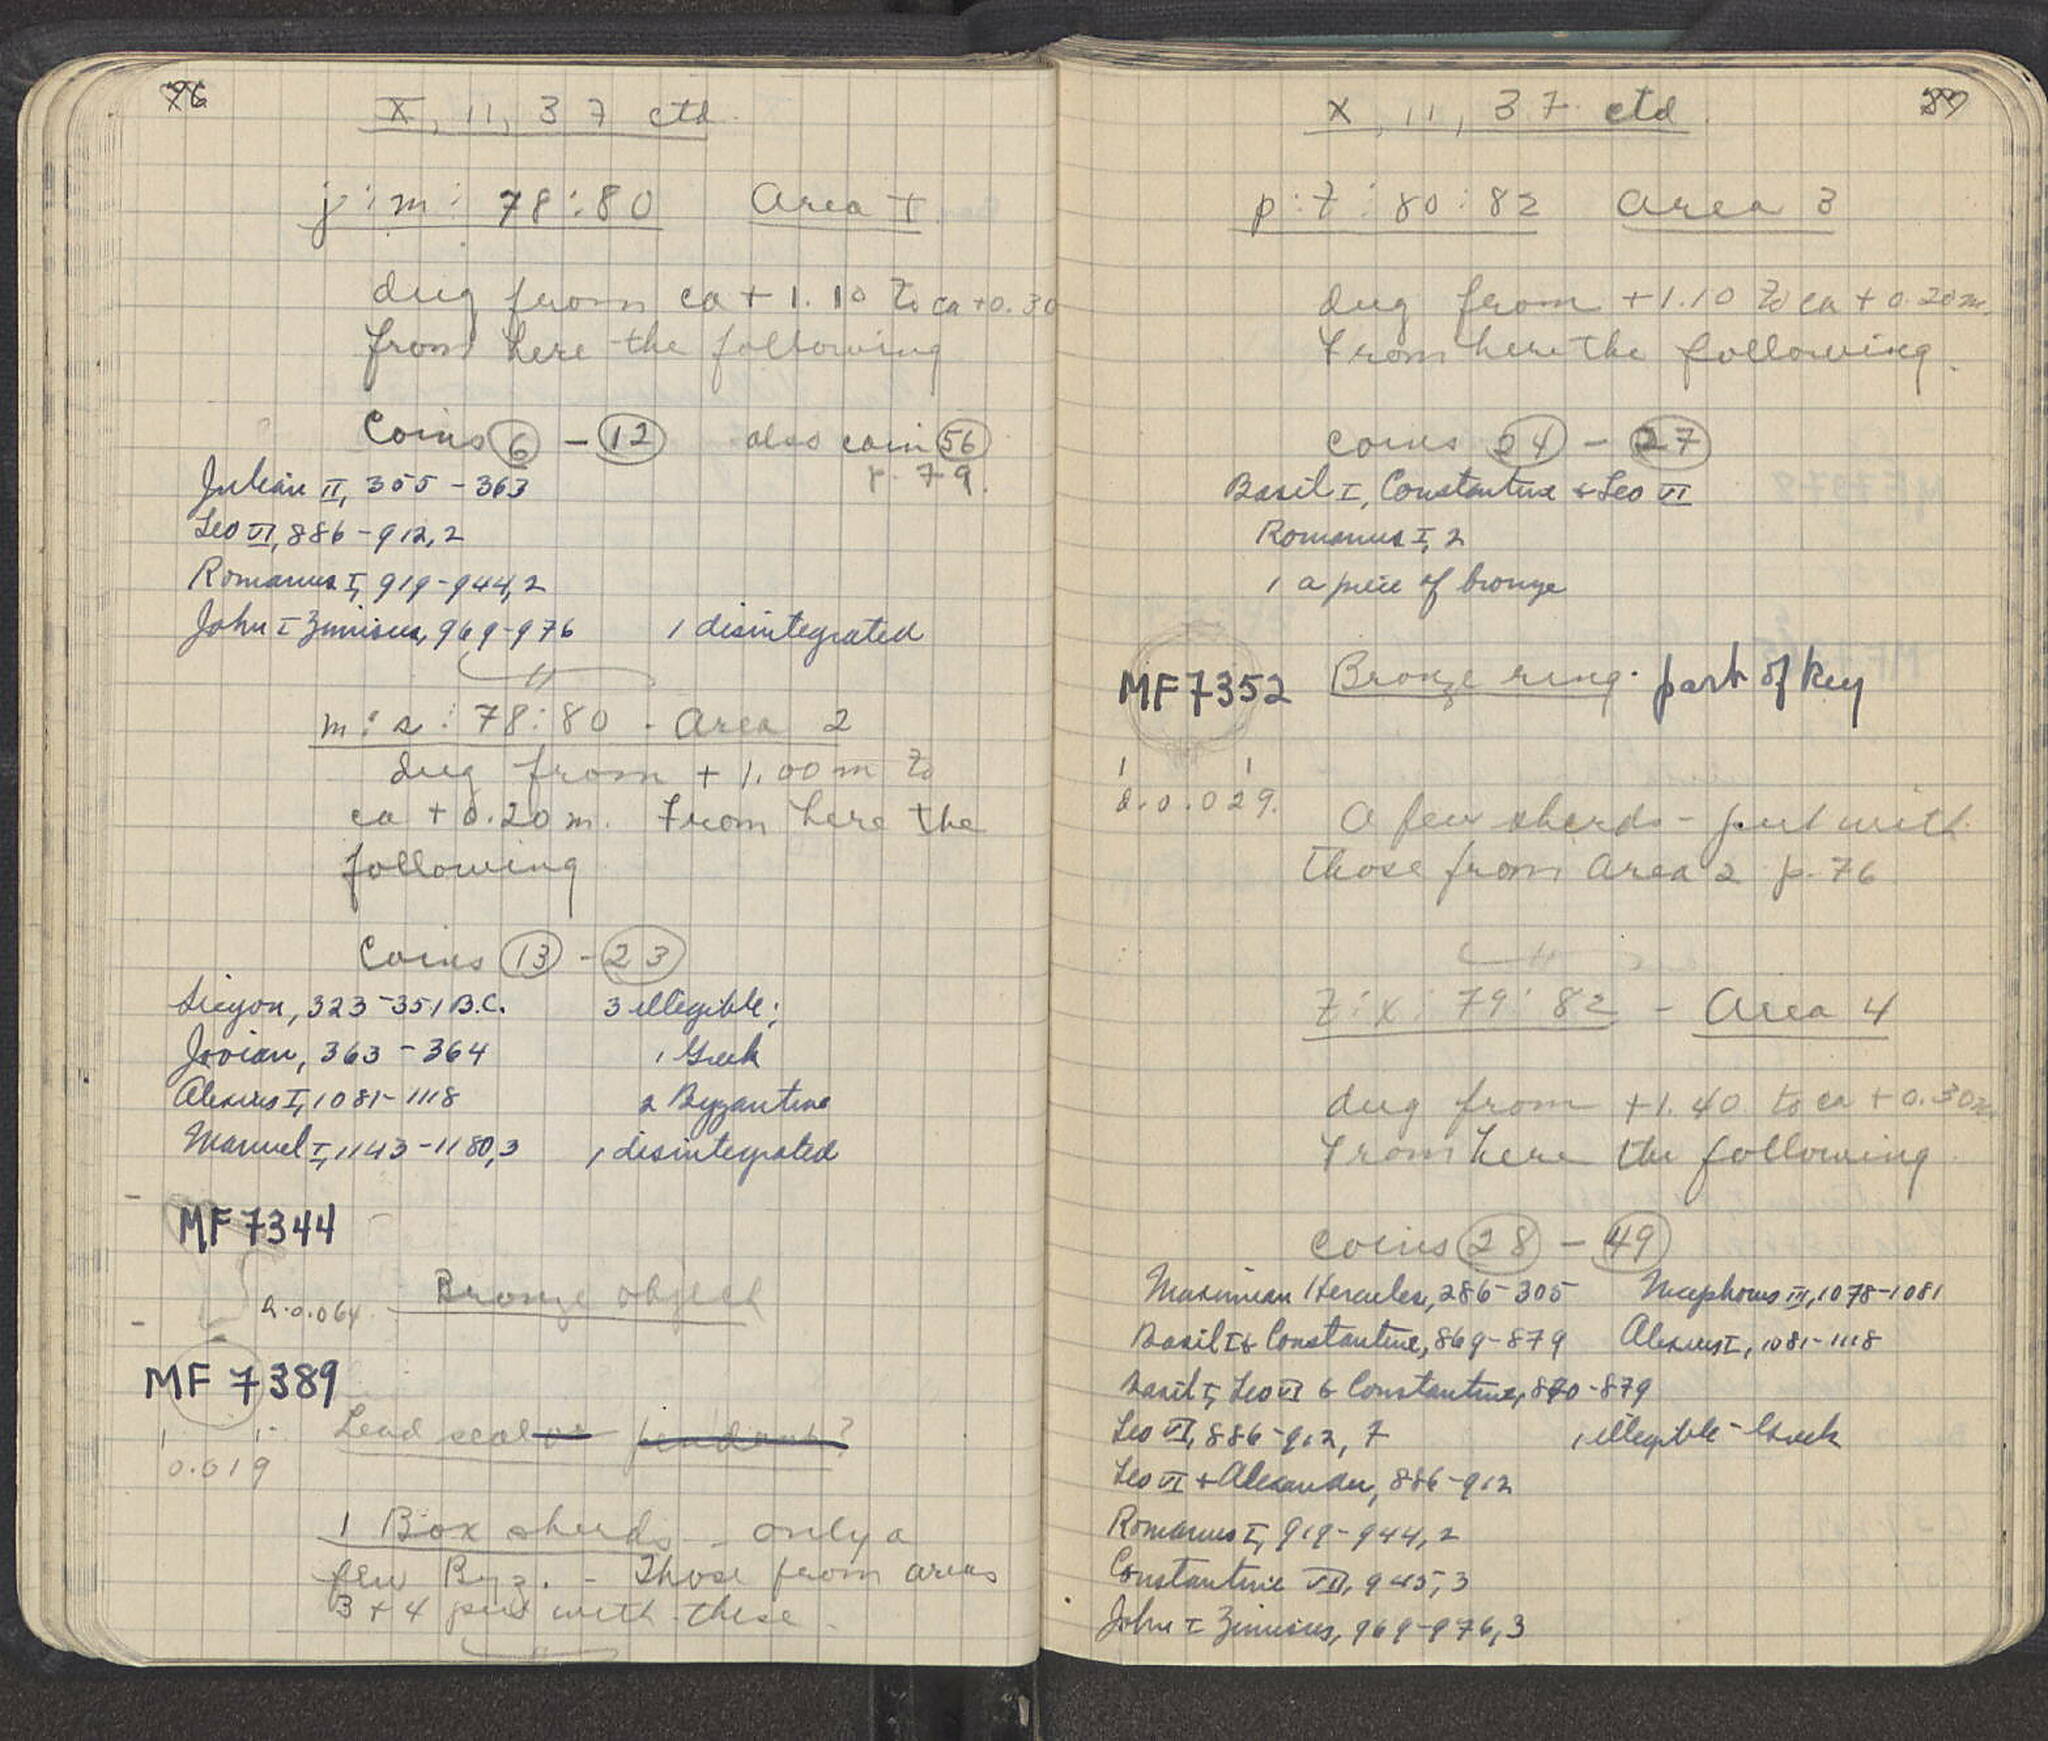 76
X, 11, 37 ctd.
j:m: 78:80 Area 1
dug from ca + 1.10 to ca +0.30
From here the following
Coins 6 - 12 also coin 56
p. 79.
Julian II, 355 - 363
Leo VI, 886 - 912, 2
Romanus I, 919-944, 2
John I Zimisces, 969-976 1 disintegrated
m:s: 78:80 - Area 2
dug from + 1.00 m to
ca + 0.20 m. From here the
following
Coins 13 - 23
Sicyon, 323-351 B.C. 3 illegible;
Jovian, 363 - 364 1 Greek
Alexius I, 1081-1118 2 Byzantine
Manuel I, 1143-1180, 3 1 disintegrated
MF 7344
h.0.064. Bronze object
MF 7389
Lead seal or pendant?
0.019
1 Box sherds - only a
few Byz. - Those from areas
3 + 4 put with these.
X, 11, 37 ctd.
p:t: 80:82 Area 3
dug from +1.10 to ca +0.20 m.
From here the following.
Coins 24 - 27
Basil I, Constantine & Leo VI
Romanus I, 2
1 a piece of bronze
MF 7352 Bronze ring. part of key
d.0.029.
A few sherds - put with
those from Area 2 p. 76
t:x: 79:82 - Area 4
dug from +1.40 to ca +0.30 m
From here the following
Coins 28 - 49
Maximian Hercules, 286-305 Nicephorus III, 1078-1081
Basil I & Constantine, 869-879 Alexius I, 1081-1118
Basil I, Leo VI & Constantine, 870-879
Leo VI, 886-912, 7 1 illegible - Greek
Leo VI + Alexander, 886-912
Romanus I, 919-944, 2
Constantine VII, 945, 3
John I Zimisces, 969-976, 3